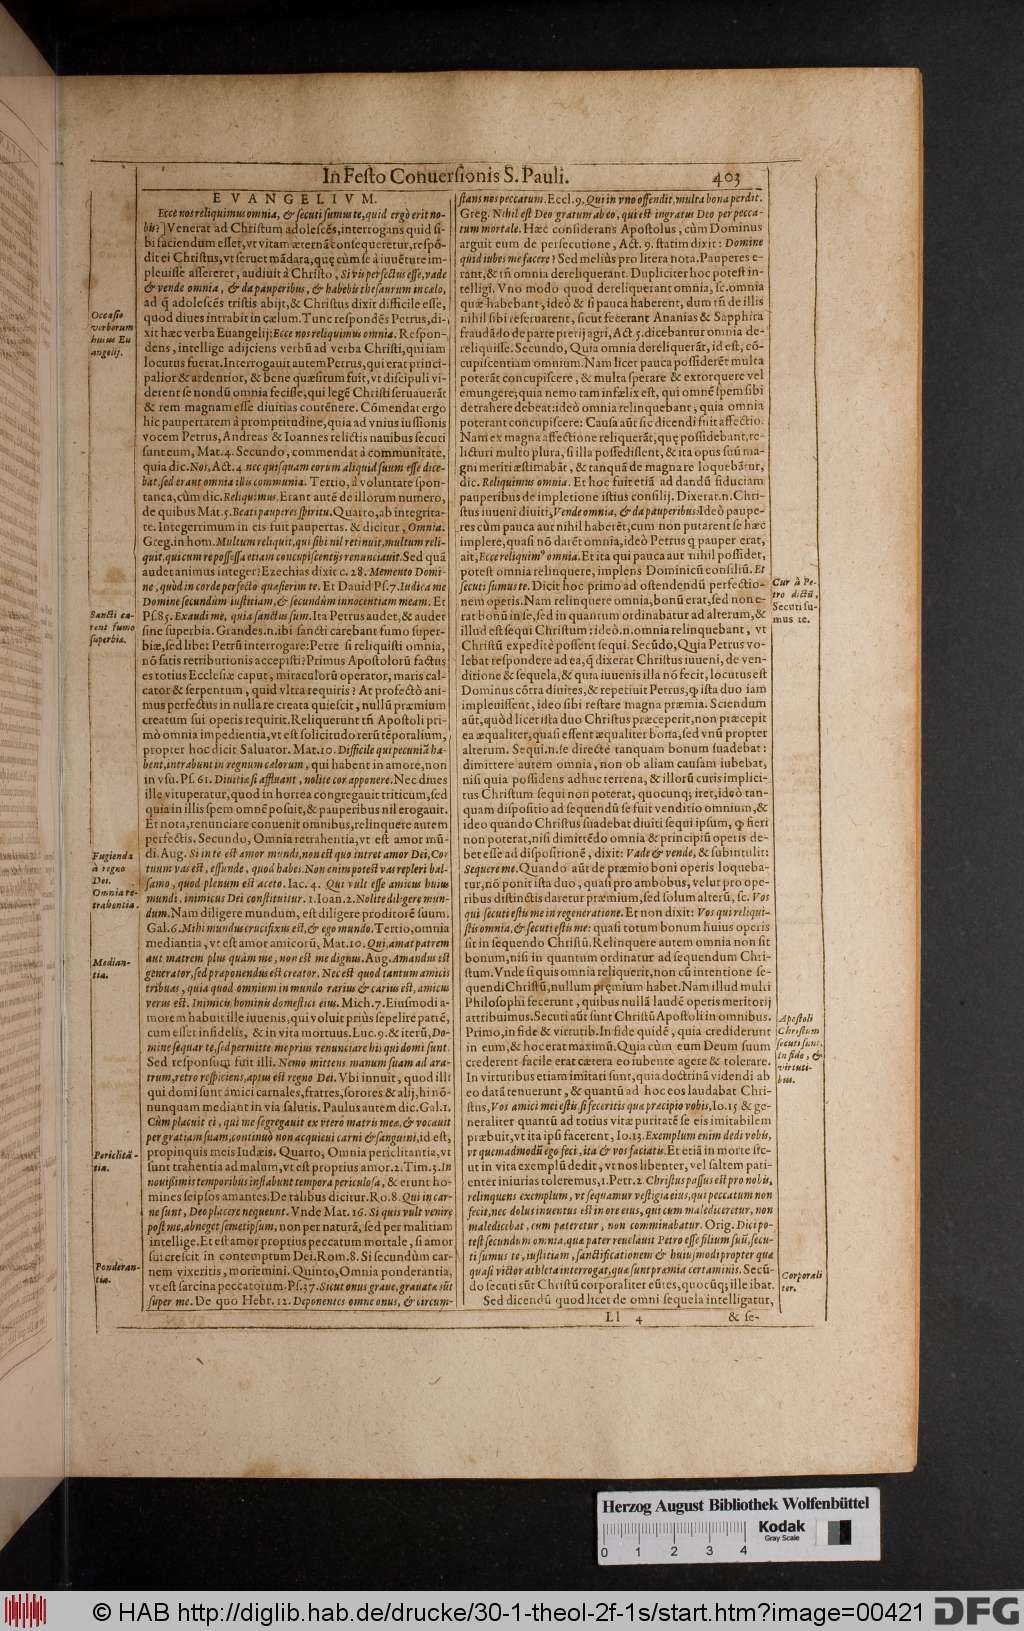 In Festo Conuersionis S. Pauli. 403
EVANGELIVM.
Ecce nos reliquimus omnia, & secuti sumus te, quid ergò erit no-
bis?] Venerat ad Christum adolescẽs, interrogans quid si-
bi faciendum esset, vt vitam æternã consequeretur, respõ-
dit ei Christus, vt seruet mãdata, quę cùm se à iuuẽtute im-
pleuisse assereret, audiuit à Christo, Si vis perfectus esse, vade
& vende omnia, & da pauperibus, & habebis thesaurum in cælo,
ad q̃ adolescẽs tristis abijt, & Christus dixit difficile esse,
quod diues intrabit in cælum. Tunc respondẽs Petrus, di-
xit hæc verba Euangelij: Ecce nos reliquimus omnia. Respon-
dens, intellige adijciens verbũ ad verba Christi, qui iam
locutus fuerat. Interrogauit autem Petrus, qui erat princi-
palior & ardentior, & bene quæsitum fuit, vt discipuli vi-
derent se nondũ omnia fecisse, qui legẽ Christi seruauerãt
& rem magnam esse diuitias contẽnere. Cõmendat ergo
hic paupertatem à promptitudine, quia ad vnius iussionis
vocem Petrus, Andreas & Ioannes relictis nauibus secuti
sunt eum, Mat. 4. Secundo, commendat à communitate,
quia dic. Nos, Act. 4 nec quisquam eorum aliquid suum esse dice-
bat, sed erant omnia illis communia. Tertio, à voluntate spon-
tanea, cùm dic. Reliquimus. Erant autẽ de illorum numero,
de quibus Mat. 5. Beati pauperes spiritu. Quarto, ab integrita-
te. Integerrimum in eis fuit paupertas. & dicitur, Omnia.
Greg. in hom. Multum reliquit, qui sibi nil retinuit, multum reli-
quit, qui cum re possessa etiam concupiscentijs renunciauit. Sed quã
audet animus integer? Ezechias dixit c. 28. Memento Domi-
ne, quòd in corde perfecto quæsierim te. Et Dauid Ps. 7. Iudica me
Domine secundum iustitiam, & secundùm innocentiam meam. Et
Ps. 85. Exaudi me, quia sanctus sum. Ita Petrus audet, & audet
sine superbia. Grandes. n. ibi sancti carebant fumo super-
biæ, sed libet Petrũ interrogare: Petre si reliquisti omnia,
nõ satis retributionis accepisti? Primus Apostolorũ factus
es totius Ecclesiæ caput, miraculorũ operator, maris cal-
cator & serpentum, quid vltra requiris? At profectò ani-
mus perfectus in nulla re creata quiescit, nullũ præmium
creatum sui operis requirit. Reliquerunt tñ Apostoli pri-
mò omnia impedientia, vt est solicitudo rerũ tẽporalium,
propter hoc dicit Saluator. Mat. 10. Difficile qui pecuniã ha-
bent, intrabunt in regnum cælorum, qui habent in amore, non
in vsu. Ps. 61. Diuitiæ si affluant, nolite cor apponere. Nec diues
ille vituperatur, quod in horrea congregauit triticum, sed
quia in illis spem omnẽ posuit, & pauperibus nil erogauit.
Et nota, renunciare conuenit omnibus, relinquere autem
perfectis. Secundo, Omnia retrahentia, vt est amor mũ-
di. Aug. Si in te est amor mundi, non est quo intret amor Dei, Cor
tuum vas est, effunde, quod habes. Non enim potest vas repleri bal-
samo, quod plenum est aceto. Iac. 4. Qui vult esse amicus huius
mundi, inimicus Dei constituitur. 1. Ioan. 2. Nolite diligere mun-
dum. Nam diligere mundum, est diligere proditorẽ suum.
Gal. 6. Mihi mundus crucifixus est, & ego mundo. Tertio, omnia
mediantia, vt est amor amicorũ, Mat. 10. Qui amat patrem
aut matrem plus quàm me, non est me dignus. Aug. Amandus est
generator, sed præponendus est creator. Nec est quod tantum amicis
tribuas, quia quod omnium in mundo rarius & carius est, amicus
verus est. Inimici hominis domestici eius. Mich. 7. Eiusmodi a-
morem habuit ille iuuenis, qui voluit priùs sepelire patrẽ,
cum esset infidelis, & in vita mortuus. Luc. 9. & iterũ, Do-
mine sequar te, sed permitte me prius renunciare his qui domi sunt.
Sed responsum fuit illi. Nemo mittens manum suam ad ara-
trum, retro respiciens, aptus est regno Dei. Vbi innuit, quod illi
qui domi sunt amici carnales, fratres, sorores & alij, hi nõ-
nunquam mediant in via salutis. Paulus autem dic. Gal. 1.
Cùm placuit ei, qui me segregauit ex vtero matris meæ, & vocauit
per gratiam suam, continuò non acquieui carni & sanguini, id est,
propinquis meis Iudæis. Quarto, Omnia periclitantia, vt
sunt trahentia ad malum, vt est proprius amor. 2. Tim. 3. In
nouissimis temporibus instabunt tempora periculosa, & erunt ho-
mines seipsos amantes. De talibus dicitur. Ro. 8. Qui in car-
ne sunt, Deo placere nequeunt. Vnde Mat. 16. Si quis vult venire
post me, abneget semetipsum, non per naturã, sed per malitiam
intellige. Et est amor proprius peccatum mortale, si amor
sui crescit in contemptum Dei. Rom. 8. Si secundùm car-
nem vixeritis, moriemini. Quinto, Omnia ponderantia,
vt est sarcina peccatorum. Ps. 37. Sicut onus graue, grauatæ sũt
super me. De quo Hebr. 12. Deponentes omne onus, & circum-
Occasio
verborum
huius Eu
angelij.
Sancti ca-
rent fumo
superbiæ.
Fugienda
à regno
Dei.
Omnia re-
trahentia.
Median-
tia.
Periclitã-
tia.
Ponderan-
tia.
stans nos peccatum. Eccl. 9. Qui in vno offendit, multa bona perdit.
Greg. Nihil est Deo gratum ab eo, qui est ingratus Deo per pecca-
tum mortale. Hæc considerans Apostolus, cùm Dominus
arguit eum de persecutione, Act. 9. statim dixit: Domine
quid iubes me facere? Sed meliùs pro litera nota. Pauperes e-
rant, & tñ omnia dereliquerant. Dupliciter hoc potest in-
telligi. Vno modo quod dereliquerant omnia, sc. omnia
quæ habebant, ideò & si pauca haberent, dum tñ de illis
nihil sibi reseruarent, sicut fecerant Ananias & Sapphira
fraudãdo de parte pretij agri, Act. 5. dicebantur omnia de-
reliquisse. Secundo, Quia omnia dereliquerãt, id est, cõ-
cupiscentiam omnium. Nam licet pauca possiderẽt multa
poterãt concupiscere, & multa sperare & extorquere vel
emungere; quia nemo tam infælix est, qui omnẽ spem sibi
detrahere debeat: ideò omnia relinquebant, quia omnia
poterant concupiscere: Causa aũt sic dicendi fuit affectio.
Nam ex magna affectione reliquerãt, quę possidebant, re-
licturi multo plura, si illa possedissent, & ita opus suũ ma-
gni meriti æstimabãt, & tanquã de magna re loquebãtur,
dic. Reliquimus omnia. Et hoc fuit etiã ad dandũ fiduciam
pauperibus de impletione istius consilij. Dixerat. n. Chri-
stus iuueni diuiti, Vende omnia, & da pauperibus: Ideò paupe-
res cùm pauca aut nihil haberẽt, cum non putarent se hæc
implere, quasi nõ darẽt omnia, ideò Petrus q̃ pauper erat,
ait, Ecce reliquimꝰ omnia. Et ita qui pauca aut nihil possidet,
potest omnia relinquere, implens Dominicũ consiliũ. Et
secuti sumus te. Dicit hoc primo ad ostendendũ perfectio-
nem operis. Nam relinquere omnia, bonũ erat, sed non e-
rat bonũ in se, sed in quantum ordinabatur ad alterum, &
illud est sequi Christum: ideò. n. omnia relinquebant, vt
Christũ expeditè possent sequi. Secũdo, Quia Petrus vo-
lebat respondere ad ea, q̃ dixerat Christus iuueni, de ven-
ditione & sequela, & quia iuuenis illa nõ fecit, locutus est
Dominus cõtra diuites, & repetiuit Petrus, ꝙ ista duo iam
impleuissent, ideo sibi restare magna præmia. Sciendum
aũt, quòd licet ista duo Christus præceperit, non præcepit
ea æqualiter, quasi essent æqualiter bona, sed vnũ propter
alterum. Sequi. n. se directè tanquam bonum suadebat:
dimittere autem omnia, non ob aliam causam iubebat,
nisi quia possidens adhuc terrena, & illorũ curis implici-
tus Christum sequi non poterat, quocunq; iret, ideò tan-
quam dispositio ad sequendũ se fuit venditio omnium, &
ideo quando Christus suadebat diuiti sequi ipsum, ꝙ fieri
non poterat, nisi dimittẽdo omnia & principiũ operis de-
bet esse ad dispositionẽ, dixit: Vade & vende, & subintulit:
Sequere me. Quando aũt de præmio boni operis loqueba-
tur, nõ ponit ista duo, quasi pro ambobus, velut pro ope-
ribus distinctis daretur præmium, sed solum alterũ, sc. Vos
qui secuti estis me in regeneratione. Et non dixit: Vos qui reliqui-
stis omnia, & secuti estis me: quasi totum bonum huius operis
sit in sequendo Christũ. Relinquere autem omnia non sit
bonum, nisi in quantum ordinatur ad sequendum Chri-
stum. Vnde si quis omnia reliquerit, non cũ intentione se-
quendi Christũ, nullum pręmium habet. Nam illud multi
Philosophi fecerunt, quibus nullã laudẽ operis meritorij
attribuimus. Secuti aũt sunt Christũ Apostoli in omnibus.
Primo, in fide & virtutib. In fide quidẽ, quia crediderunt
in eum, & hoc erat maximũ. Quia cùm eum Deum suum
crederent facile erat cætera eo iubente agere & tolerare.
In virtutibus etiam imitati sunt, quia doctrinã videndi ab
eo datã tenuerunt, & quantũ ad hoc eos laudabat Chri-
stus, Vos amici mei estis si feceritis quæ præcipio vobis, Io. 15 & ge-
neraliter quantũ ad totius vitæ puritatẽ se eis imitabilem
præbuit, vt ita ipsi facerent, Io. 13. Exemplum enim dedi vobis,
vt quemadmodũ ego feci, ita & vos faciatis. Et etiã in morte sic-
ut in vita exemplũ dedit, vt nos libenter, vel saltem pati-
enter iniurias toleremus, 1. Petr. 2 Christus passus est pro nobis,
relinquens exemplum, vt sequamur vestigia eius, qui peccatum non
fecit, nec dolus inuentus est in ore eius, qui cum malediceretur, non
maledicebat, cum pateretur, non comminabatur. Orig. Dici po-
test secundum omnia, quæ pater reuelauit Petro esse filium suũ, secu-
ti sumus te, iustitiam, sanctificationem & huiusmodi propter quæ
quasi victor athleta interrogat, quæ sunt præmia certaminis. Secũ-
do secuti sũt Christũ corporaliter eũtes, quocũq; ille ibat.
Sed dicendũ quod licet de omni sequela intelligatur,
Cur à Pe-
tro dictũ,
Secuti su-
mus te.
Apostoli
Christum
secuti sunt,
in fide, &
virtuti-
bus.
Corporali
ter.
Ll 4 & se-
Herzog August Bibliothek Wolfenbüttel
Kodak
Gray Scale
0 1 2 3 4
© HAB http://diglib.hab.de/drucke/30-1-theol-2f-1s/start.htm?image=00421 DFG